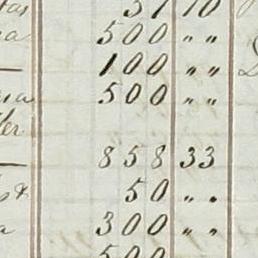 37 10
500 " "
100 " "
500 " "
858 33
50 " "
300 " "
500